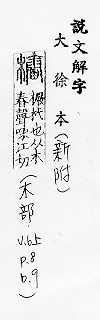 說文解字
大徐本(新附)
橛杙也从木
舂聲啄江切
(木部)
v.6上
p.8
b.9